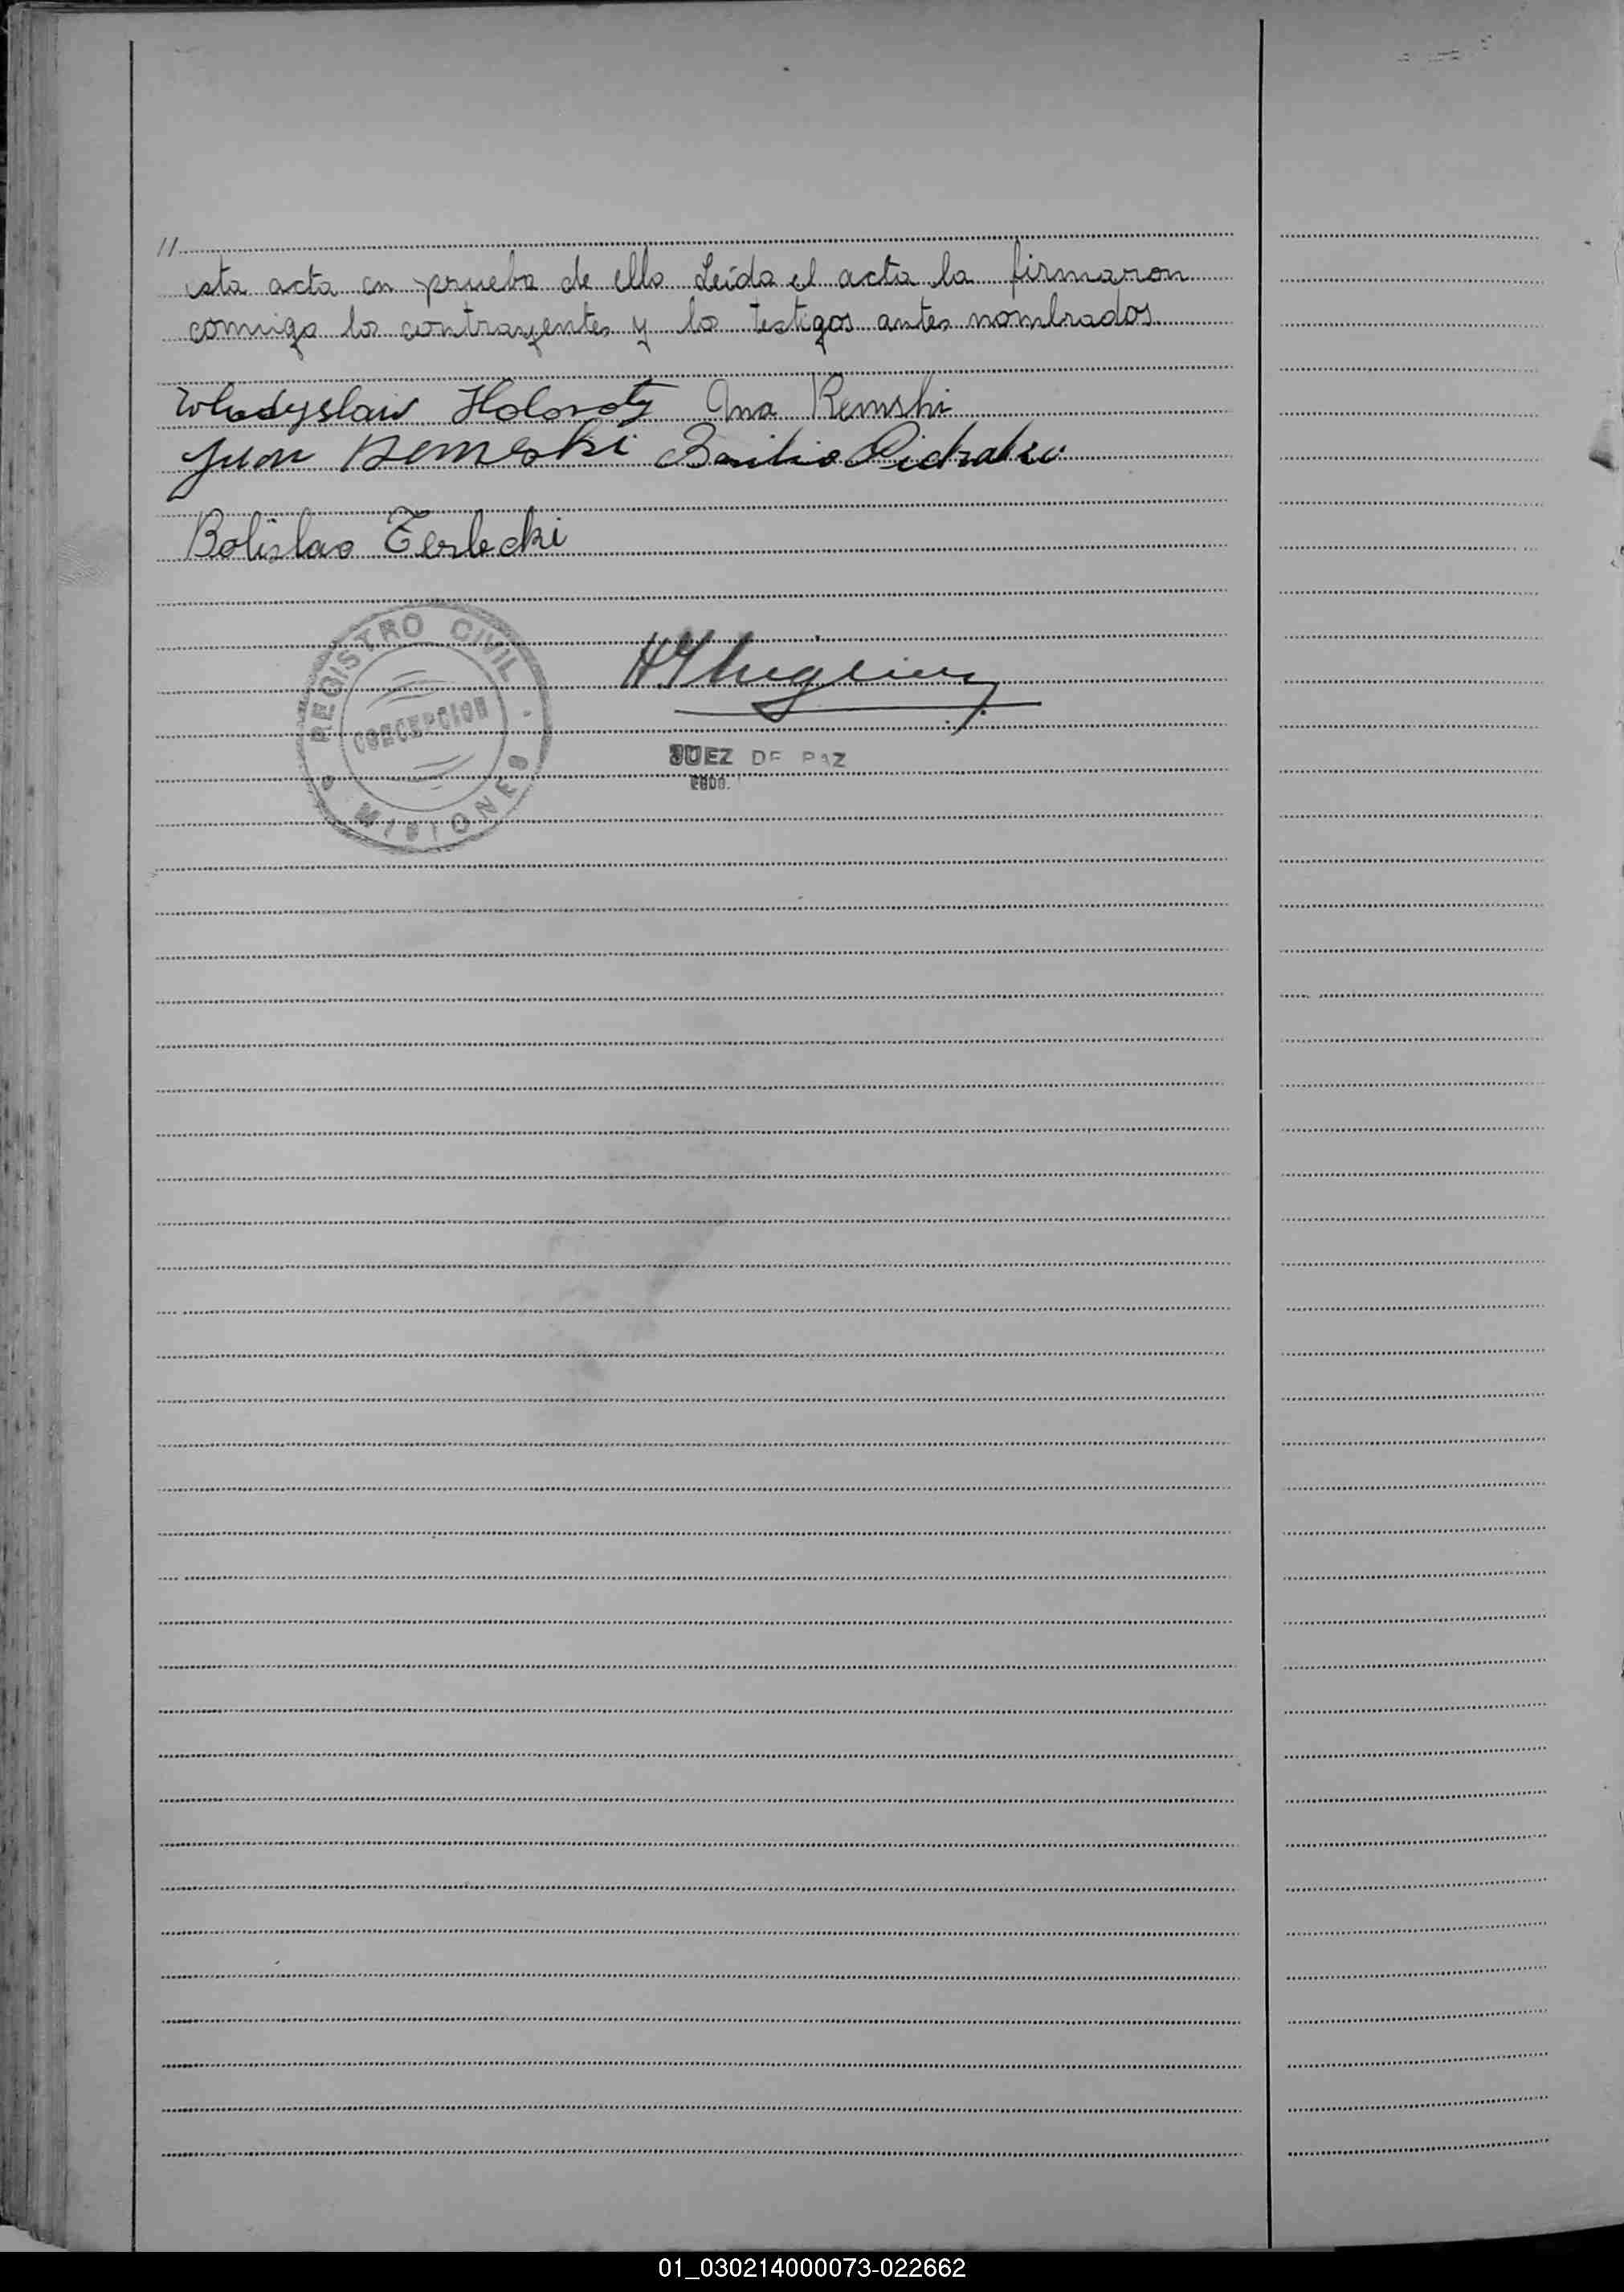 //
esta acta en prueba de ello Leída el acta la firmaron
comigo los contrayentes y los testigos antes nombrados
Wladyslaw Holovaty Ana Remski
Juan Remeski Basilio
Bolislao Terlecki
REGISTRO CIVIL
CONCEPCION
MISIONES
JUEZ DE PAZ
01_030214000073-022662